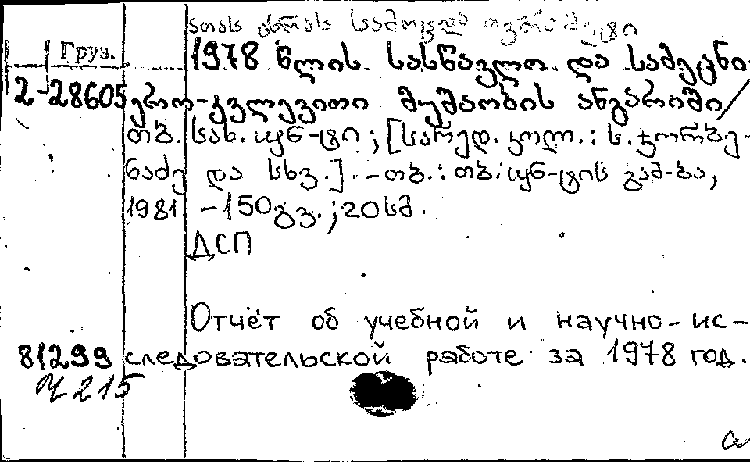 Груз. 1978 წლის სასწავლო და სამეცნი-
2-28605 ერო-კვლევითი მუშაობის ანგარიში/
თბ. სახ. უნ-ტი; [სარედ. კოლ.: ს. ჯორბე-
ნაძე და სხვ.]. -თბ.: თბ. უნ-ტის გამ-ბა,
1981 -150გვ.; 20სმ.
ДСП
Отчёт об учебной и научно-ис-
81299 следовательской работе за 1978 год.
215